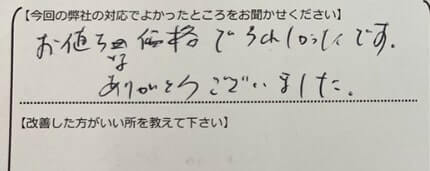 【今回の弊社の対応でよかったところをお聞かせください】
お値うな価格でうれしかったです。
ありがとうございました。
【改善した方がいい所を教えて下さい】